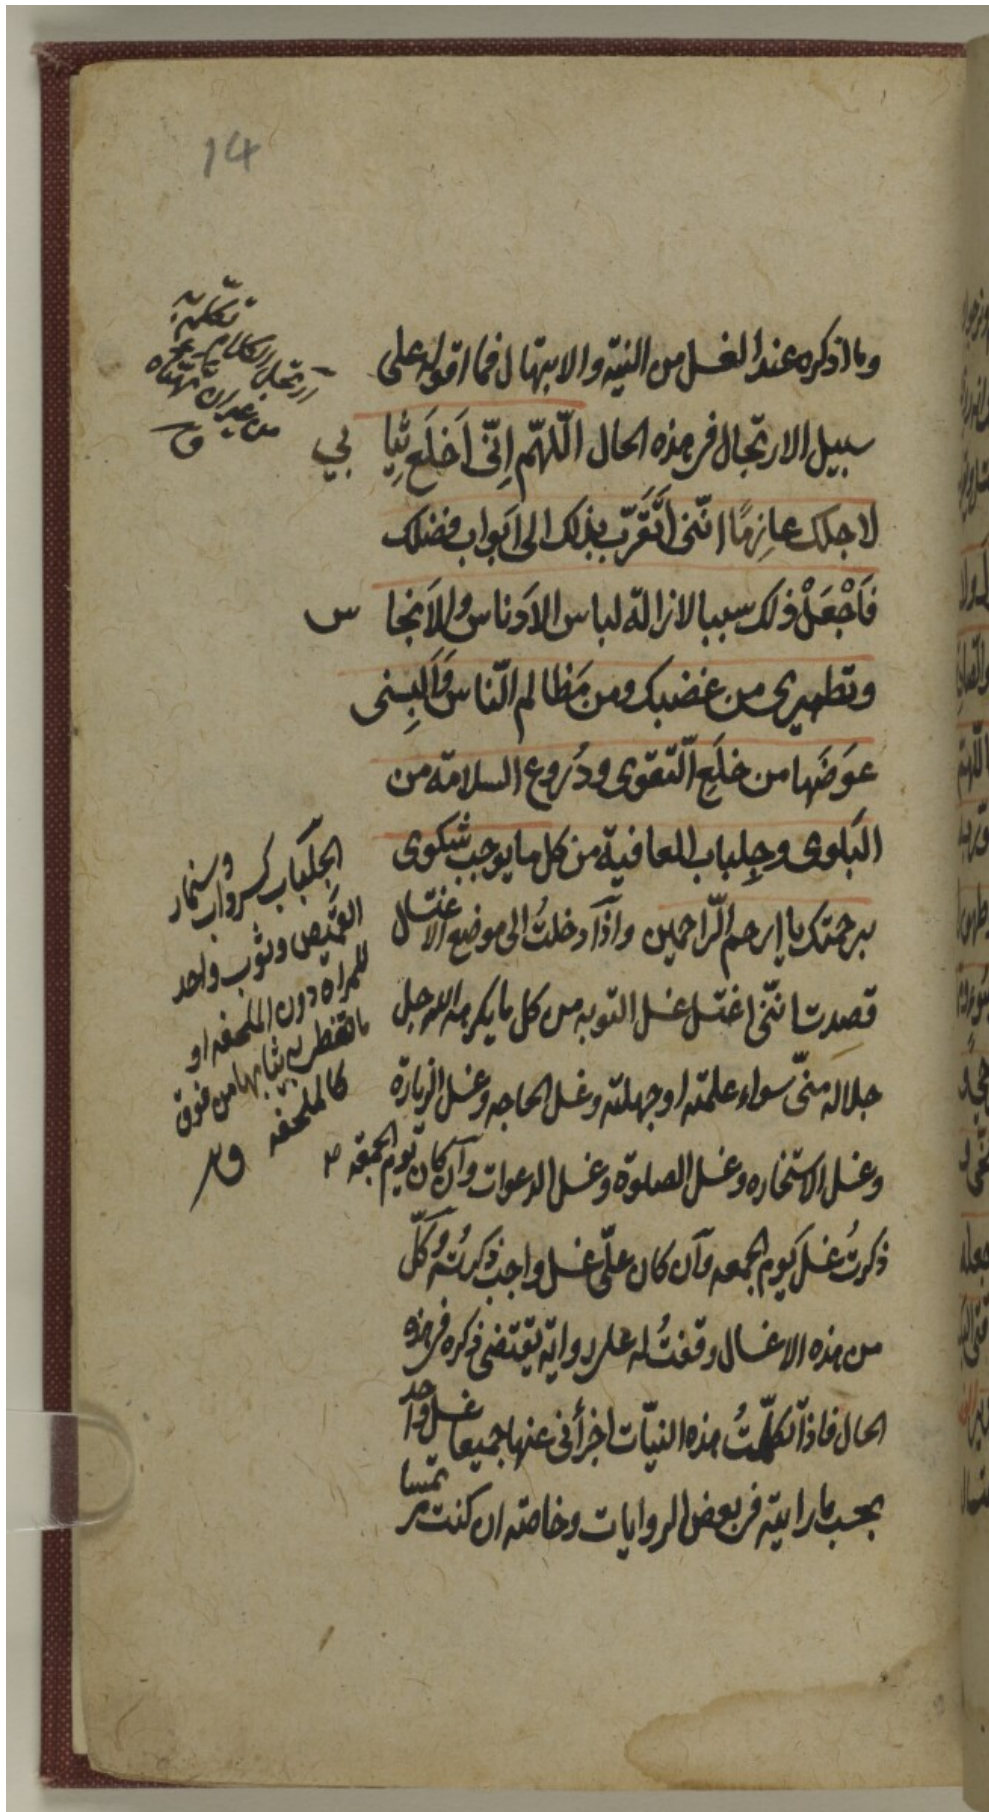 14
وما اذكره عند الغسل من النية والابتهال فما اقوله على
سبيل الارتجال فى هذه الحال اللّهمّ اِنّى اَخلَع ثيا بي
لاجلك عازِمًا انّنى اَتَقَرَّب بذلك الى ابواب فضلك
فَاَجْعَلْ ذلك سببا لازالة لباس الاَدناس والاَنجا س
وتطهيرى من غضبك ومن مَظالم النّاس وَاَلبِسنى
عوَضَها من خلَعِ التّقوى ودُروع السلامة من
البَلوى وجِلباب العافية من كل ما يوجب شكوى
برحمتك يا ارحم الرّاحمين واذا دخلتُ الى موضع الاغتسال
قصدت انّنى اغتسل غسل التوبه من كل ما يكرهه الله جل
جلاله منّى سواء علمته او جهلته وغسل الحاجه وغسل الزيارة
وغسل الاستخاره وغسل الصلوة وغسل الدعوات وان كان يوم الجمعه
ذكرتُ غسل يوم الجمعه وان كان علىّ غسل واجب ذكرتُه وكلّ
من هذه الاغسال وقفتُ له على رواية يقتضى ذكره فى هذه
الحال فاذا تكمّلتُ هذه النيّات اجزأنى عنها جميعا غسل واحد
بحسب ما رايته فى بعض الروايات وخاصة ان كنت مرتمسا
ارتجل الكلام تكلم به
من غير ان يهيّئاه
ق
الجلباب كسرداب وسنمار
القميص وثوب واحد
للمراة دون الملحفه او
ما تغطى به ثيابها من فوق
كالملحفه
ق